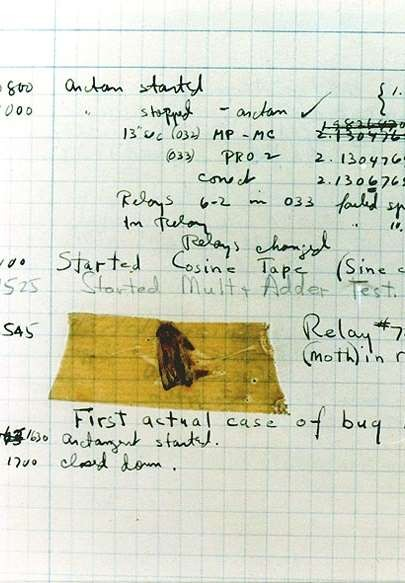 0800 Arctan started {1.
000 " stopped - arctan ✓
13"sec (032) MP - MC 2.130476
(033) PRO 2 2.130476
conect 2.13067
Relays 6-2 in 033 failed sp
In Relay " 10.
Relays changed
100 Started Cosine Tape (Sine c
1525 Started Mult + Adder Test.
1545 Relay #7
(moth) in r
First actual case of bug
1630 arctangent started.
1700 closed down.